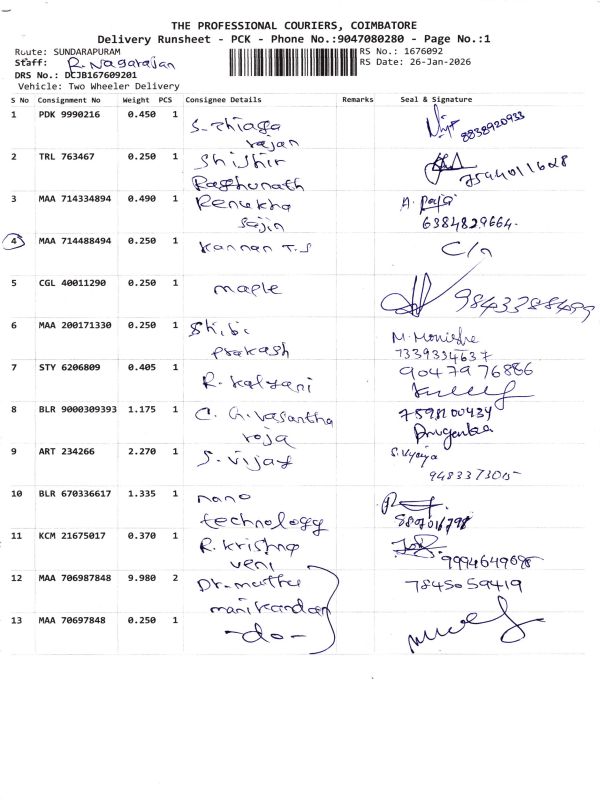 THE PROFESSIONAL COURIERS, COIMBATORE
Delivery Runsheet - PCK - Phone No.:9047080280 - Page No.:1
Route: SUNDARAPURAM
RS No.: 1676092
Staff: R. Nagarajan
RS Date: 26-Jan-2026
DRS No.: DCJB167609201
Vehicle: Two Wheeler Delivery
S No Consignment No Weight PCS Consignee Details Remarks Seal & Signature
1 PDK 9990216 0.450 1 S. Thiaga rajan 8838920933
2 TRL 763467 0.250 1 Shishir Raghunath 7594011628
3 MAA 714334894 0.490 1 Renukha Sajin A. Raja 6384829664.
4 MAA 714488494 0.250 1 Kannan T.S C/n
5 CGL 40011290 0.250 1 maple
6 MAA 200171330 0.250 1 Shibi prakash M. Monisha 7339334637
7 STY 6206809 0.405 1 R. Kalyani 9047976886
8 BLR 9000309393 1.175 1 C. G. Vasantha roja 7598100434
9 ART 234266 2.270 1 S. Vijay
10 BLR 670336617 1.335 1 nano technology
11 KCM 21675017 0.370 1 R. Krishna veni 9994649698
12 MAA 706987848 9.980 2 Dr. muthu manikandan 7845059419
13 MAA 70697848 0.250 1 -do-